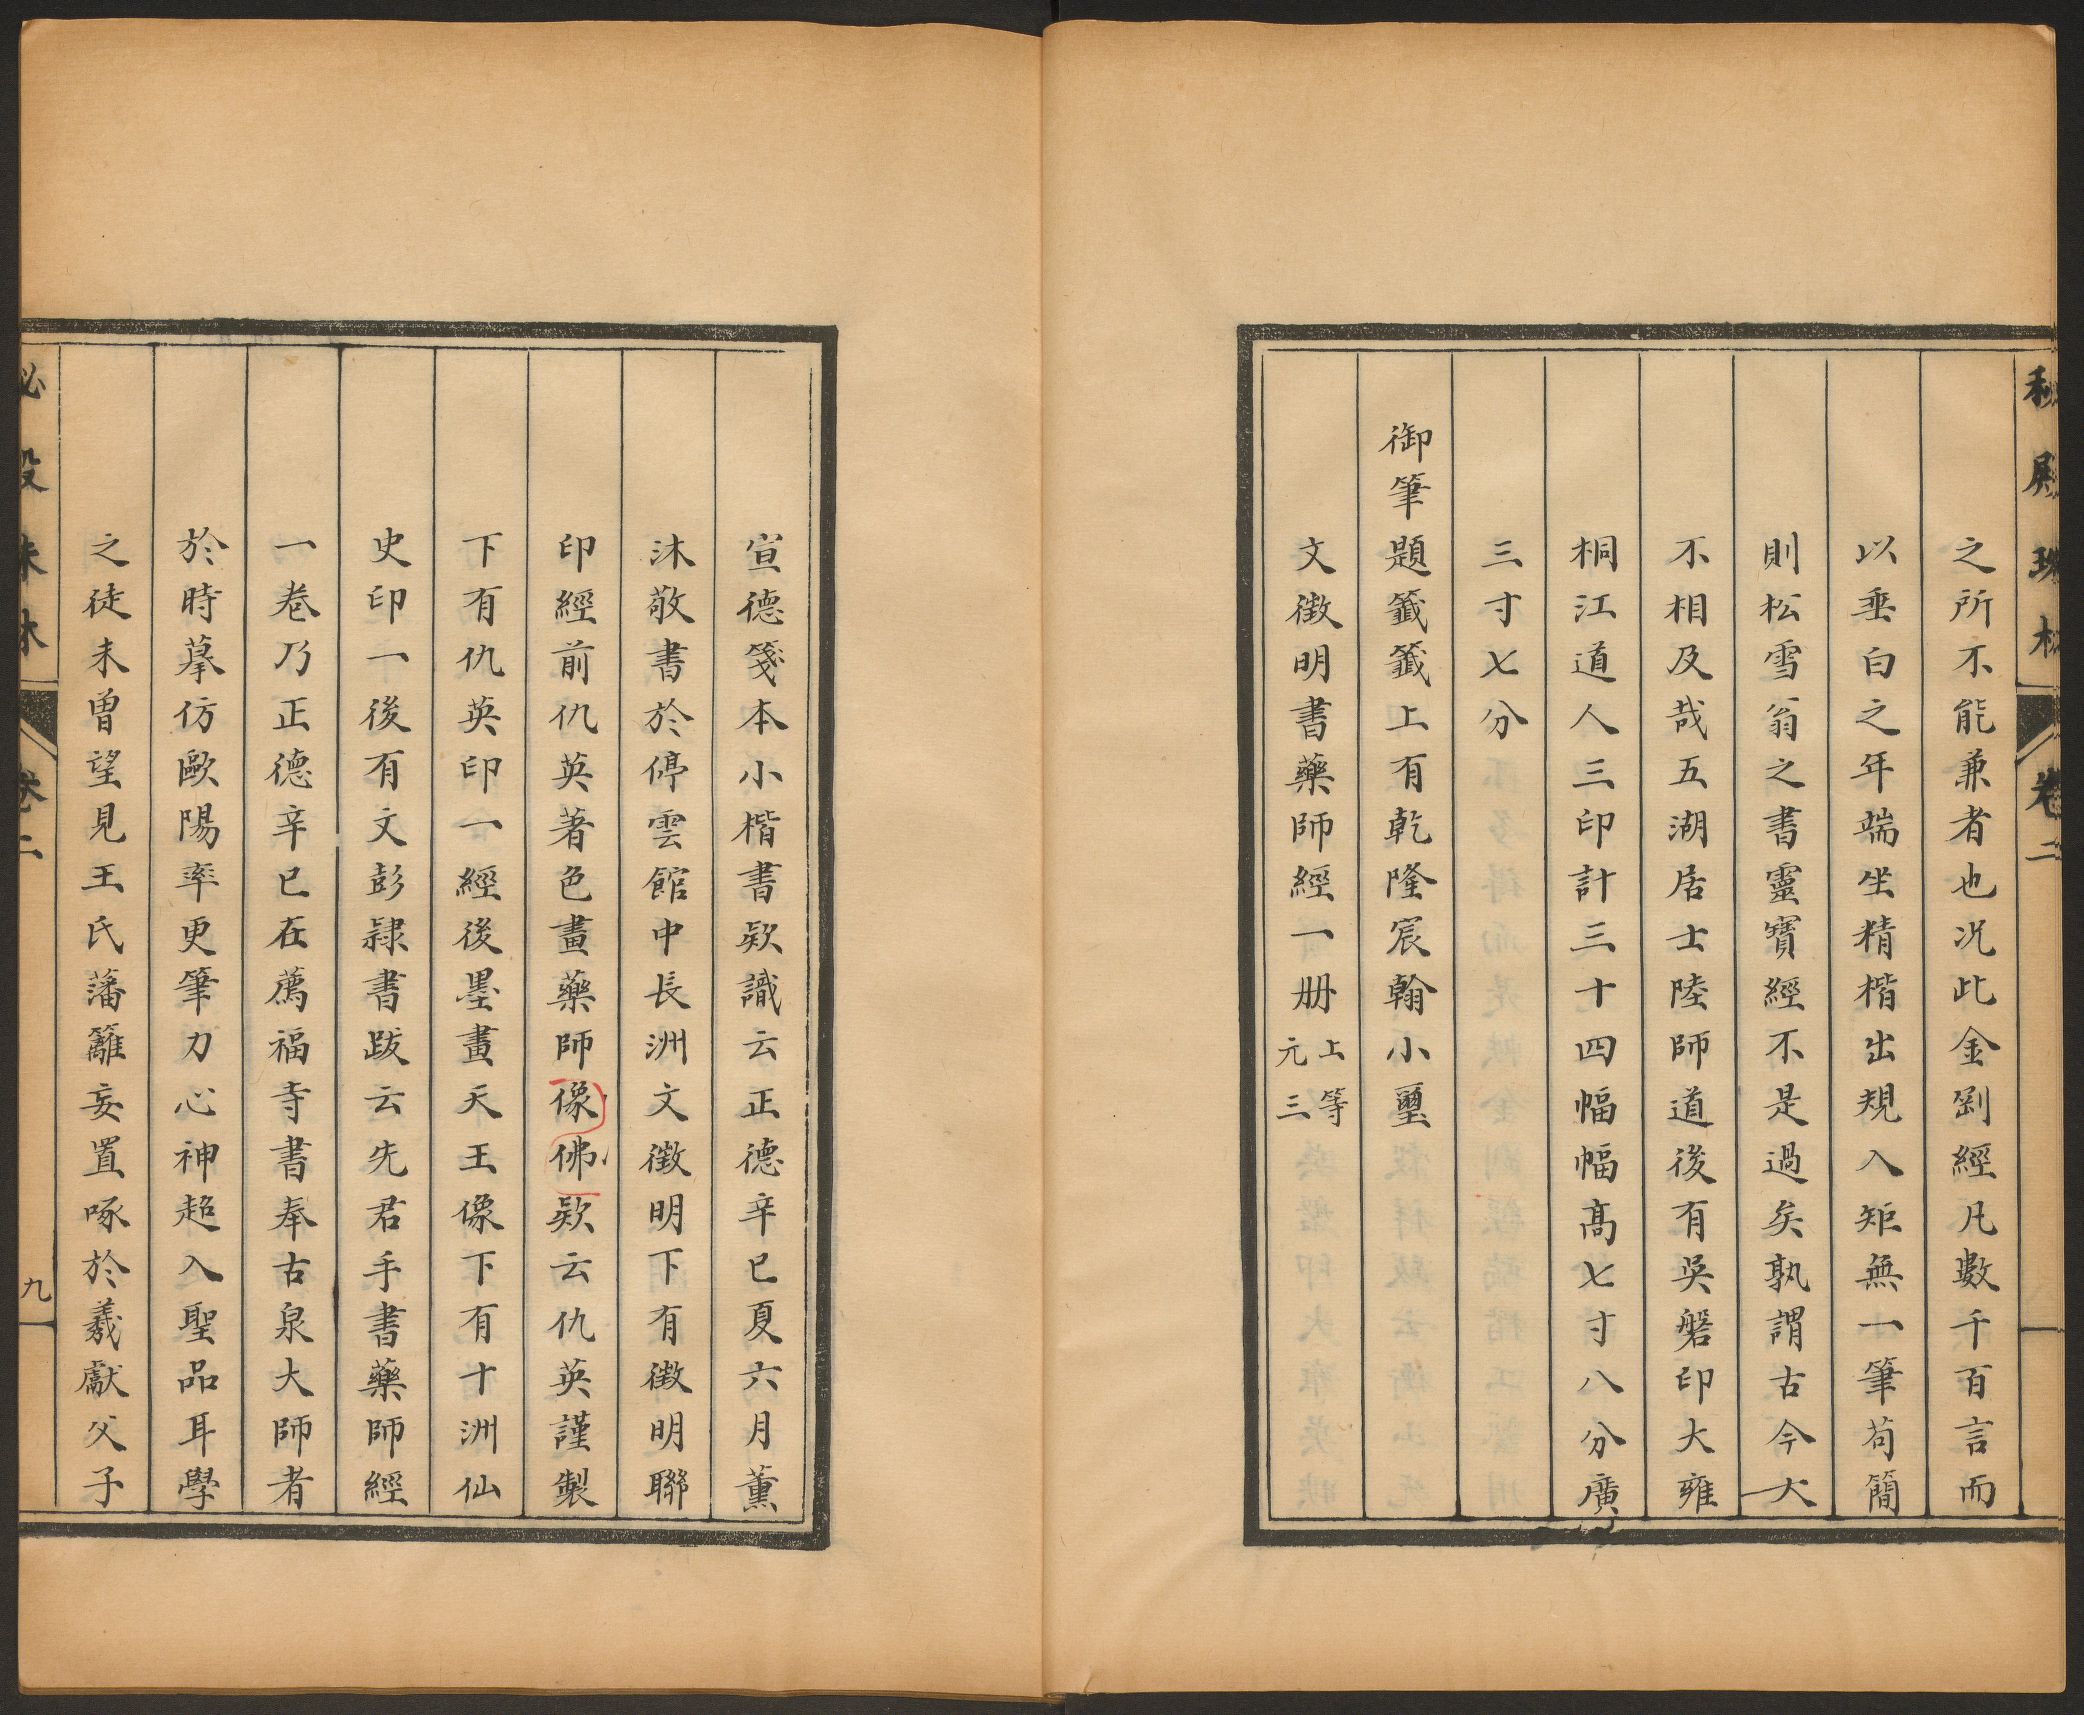 秘殿珠林 卷二
之所不能兼者也况此金剛經凡數千百言而
以垂白之年端坐精楷出規入矩無一筆苟簡
則松雪翁之書靈寶經不是過矣孰謂古今大
不相及哉五湖居士陸師道後有吳磐印大雍
桐江道人三印計三十四幅幅高七寸八分廣
三寸七分
御筆題籤籤上有乾隆宸翰小璽
文徵明書藥師經一册上等元三
宣德箋本小楷書欵識云正德辛巳夏六月薰
沐敬書於停雲館中長洲文徵明下有徵明聯
印經前仇英著色畫藥師像佛欵云仇英謹製
下有仇英印一經後墨畫天王像下有十洲仙
史印一後有文彭隸書跋云先君手書藥師經
一卷乃正德辛巳在薦福寺書奉古泉大師者
於時摹仿歐陽率更筆力心神超入聖品耳學
之徒未曾望見王氏藩籬妄置啄於羲獻父子
秘殿珠林 卷二 九